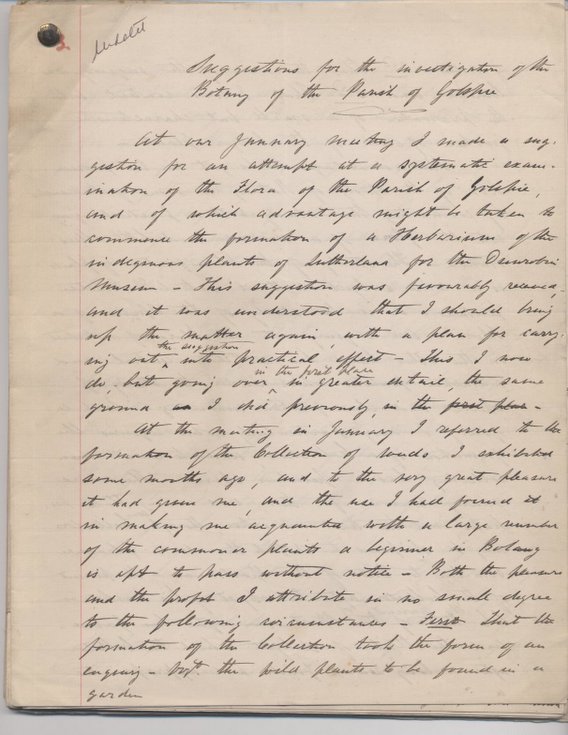 2
Suggestions for the investigation of the
Botany of the Parish of Golspie
At our January meeting I made a sug-
gestion for an attempt at a systematic exam-
ination of the Flora of the Parish of Golspie,
and of which advantage might be taken to
commence the formation of a Herbarium of the
indegenous plants of Sutherland for the Dunrobin
Museum – This suggestion was favourably received,
and it was understood that I should bring
up the matter again, with a plan for carry-
the suggestion
ing out into practical effect – This I now
in the first place
do, but going over in greater detail, the same
ground as I did previously, in the first place –
At the meeting in January I referred to the
formation of the Collection of weeds I exhibited
some months ago, and to the very great pleasure
it had given me, and the use I had found it
in making me acquainted with a large number
of the commoner plants a beginner in Botany
is apt to pass without notice – Both the pleasure
and the profit I attribute in no small degree
to the following circumstances – First that the
formation of the Collection took the form of an
enquiry – vizt. the wild plants to be found in a
garden